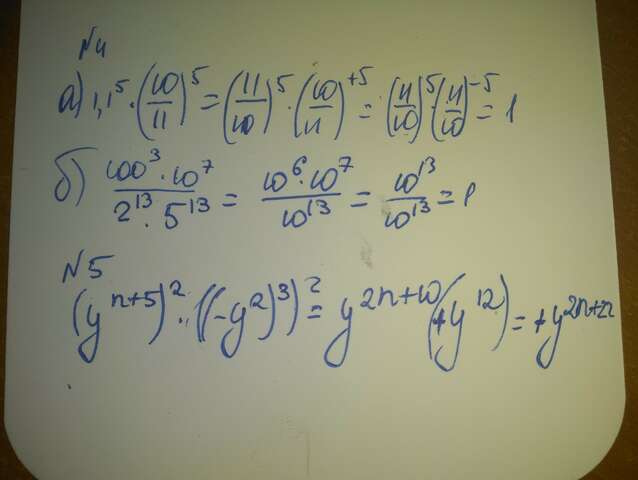 №4
а) 1,1⁵ · (10/11)⁵ = (11/10)⁵ · (10/11)⁺⁵ = (11/10)⁵ (11/10)⁻⁵ = 1
б) (100³ · 10⁷)/(2¹³ · 5¹³) = (10⁶ · 10⁷)/10¹³ = 10¹³/10¹³ = 1
№5
(yⁿ⁺⁵)² · ((-y²)³)² = y²ⁿ⁺¹⁰ (+y¹²) = +y²ⁿ⁺²²